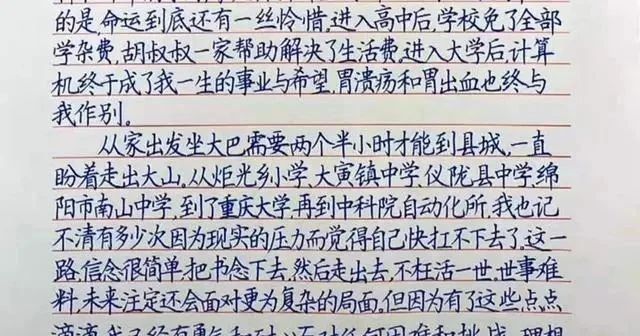 的是,命运到底还有一丝怜惜。进入高中后,学校免了全部
学杂费,胡叔叔一家帮助解决了生活费。进入大学后,计算
机终于成了我一生的事业与希望,胃溃疡和胃出血也终与
我作别。
从家出发坐大巴需要两个半小时才能到县城,一直
盼着走出大山。从炬光乡小学、大寅镇中学、仪陇县中学、绵
阳市南山中学,到了重庆大学,再到中科院自动化所,我也记
不清有多少次因为现实的压力而觉得自己快扛不下去了。这一
路,信念很简单,把书念下去,然后走出去,不枉活一世。世事难
料,未来注定还会面对更为复杂的局面。但因为有了这些点点